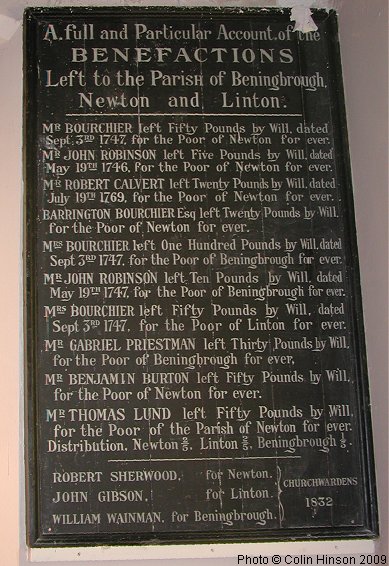 A full and Particular Account of the
BENEFACTIONS
Left to the Parish of Beningbrough,
Newton and Linton.
MR BOURCHIER left Fifty Pounds by Will, dated
Sept. 3RD 1747, for the Poor of Newton for ever.
MR JOHN ROBINSON left Five Pounds by Will, dated
May 19TH 1746, for the Poor of Newton for ever.
MR ROBERT CALVERT left Twenty Pounds by Will, dated
July 19TH 1769, for the Poor of Newton for ever.
BARRINGTON BOURCHIER Esq left Twenty Pounds by Will,
for the Poor of Newton for ever.
MRS BOURCHIER left One Hundred Pounds by Will, dated
Sept 3RD 1747, for the Poor of Beningbrough for ever.
MR JOHN ROBINSON left Ten Pounds by Will, dated
May 19TH 1747, for the Poor of Beningbrough for ever.
MRS BOURCHIER left Fifty Pounds by Will, dated
Sept 3RD 1747, for the Poor of Linton for ever.
MR GABRIEL PRIESTMAN left Thirty Pounds by Will,
for the Poor of Beningbrough for ever,
MR BENJAMIN BURTON left Fifty Pounds by Will,
for the Poor of Newton for ever.
MR THOMAS LUND left Fifty Pounds by Will,
for the Poor of the Parish of Newton for ever.
Distribution, Newton Linton Beningbrough
ROBERT SHERWOOD, for Newton.
JOHN GIBSON, for Linton.
WILLIAM WAINMAN, for Beningbrough.
CHURCHWARDENS
1832
Photo © Colin Hinson 2009